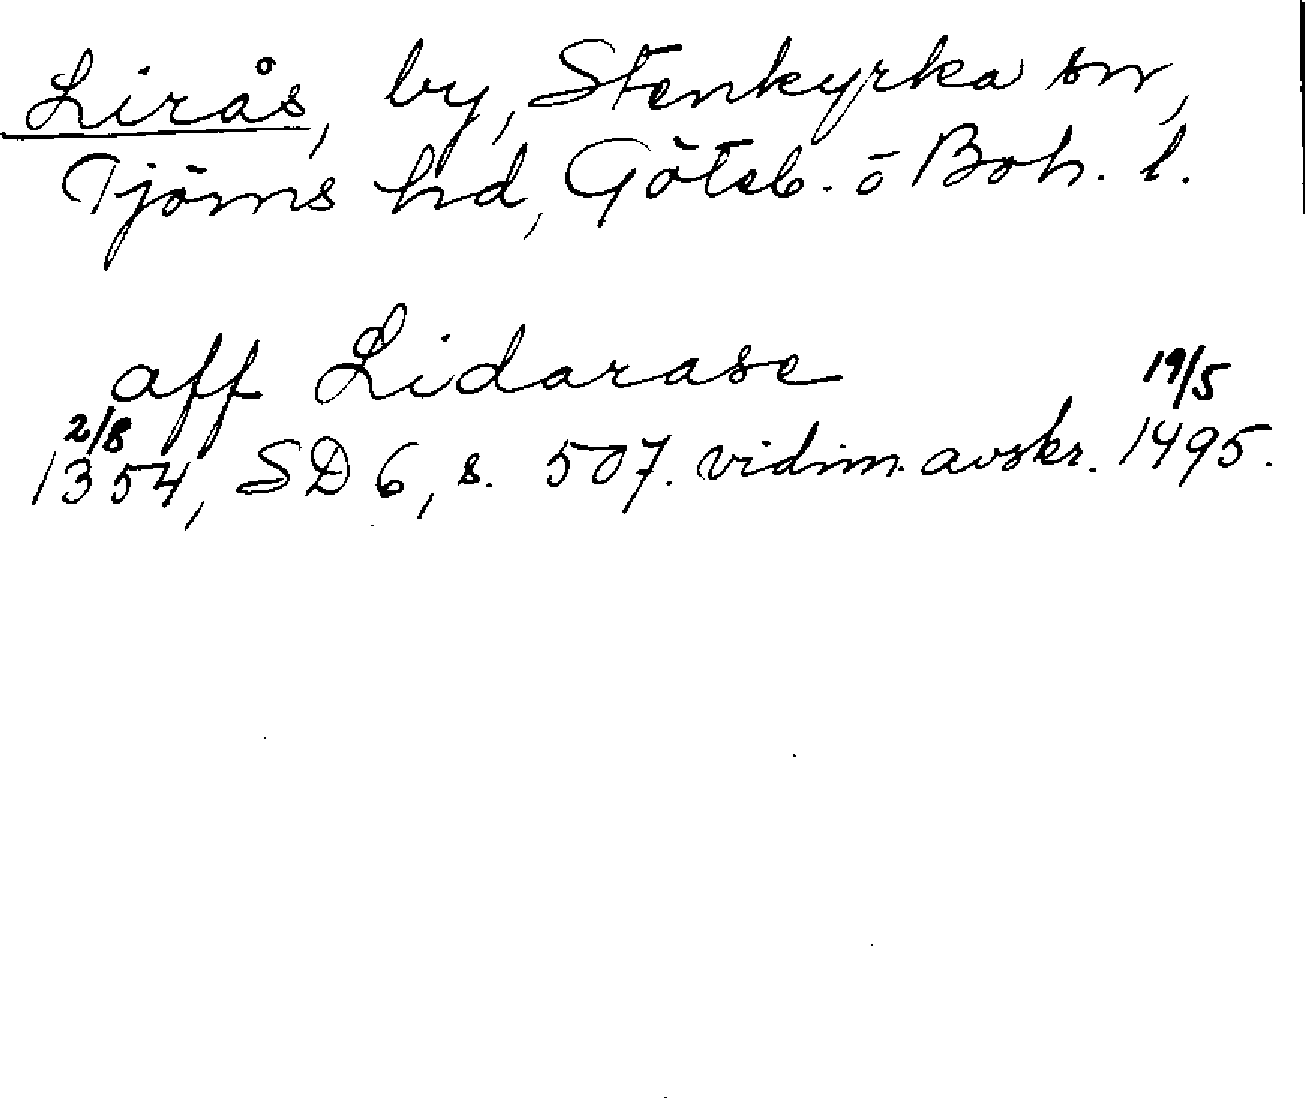 Lirås, by, Stenkyrka sn,
Tjörns hd, Göteb. o Boh. l.
aff Lidarase
2/8 19/5
1354, SD 6, s. 507. vidim. avskr. 1495.